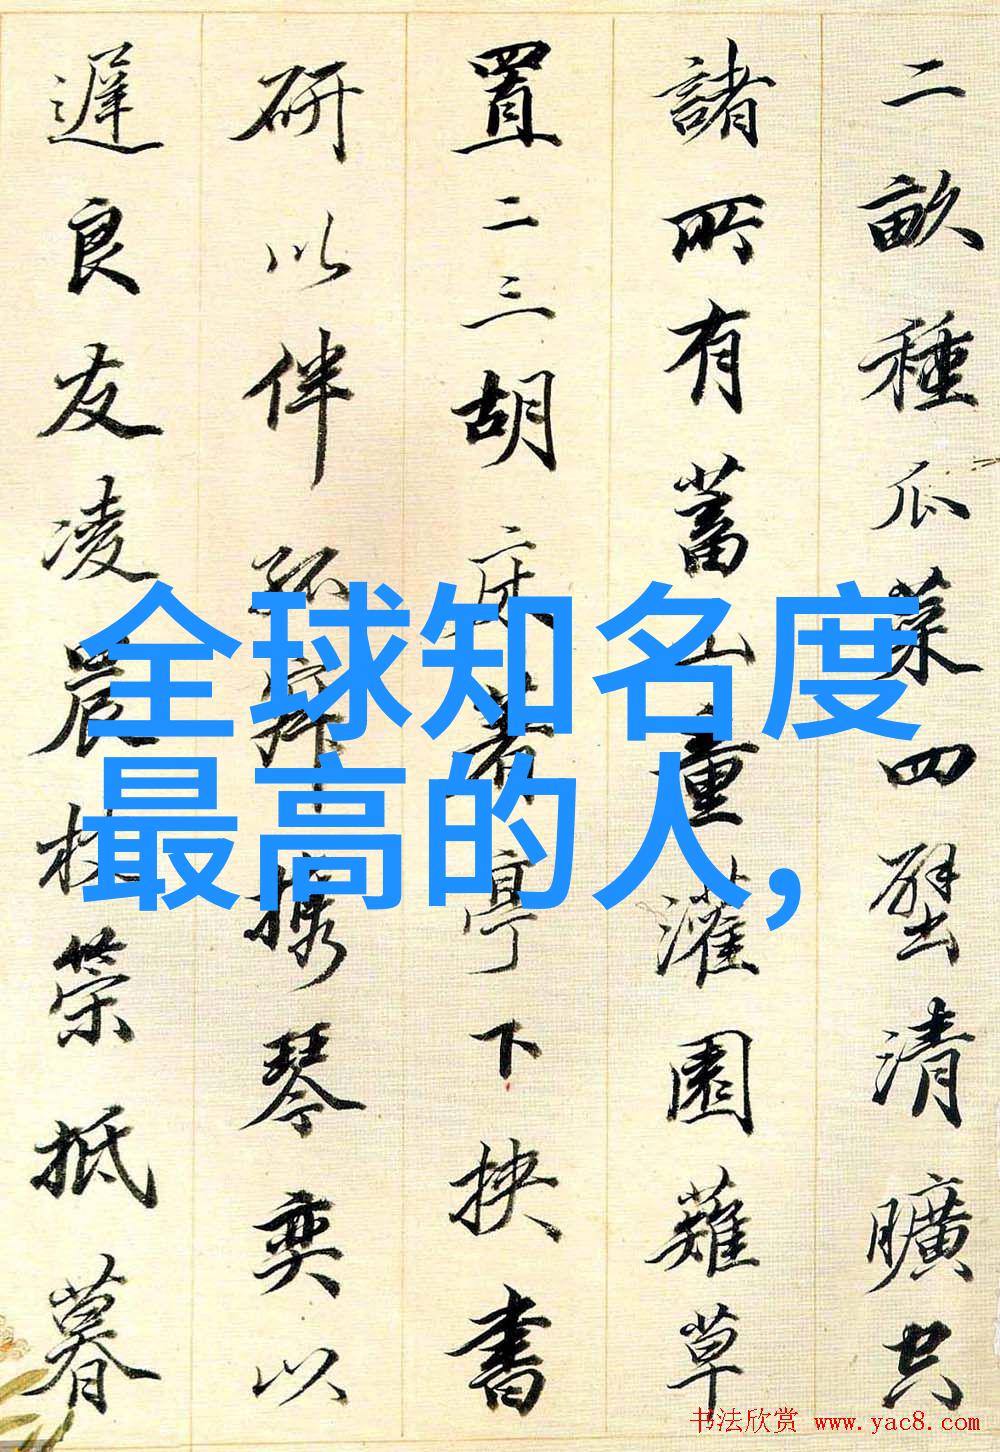 二畝種瓜菜四壁清曠空
諸所有蓄山童灌園薙草
置二三胡床著亭下挾書
研以伴孤寂携琴奕以
遲良友凌晨杖策抵暮
全球知名度
最高的人,
书法欣赏 www.yac8.com